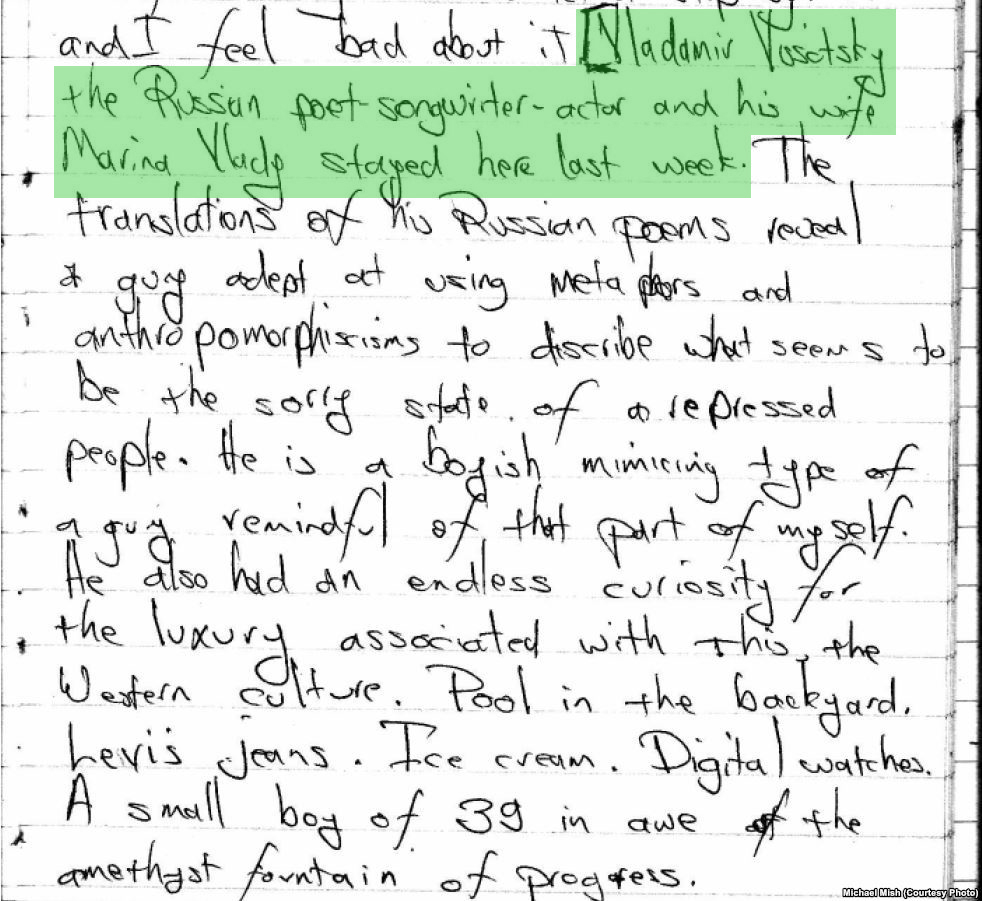 and I feel bad about it Vladamir Vosotsky
the Russian poet-songwirter-actor and his wife
Marina Vlady stayed here last week. The
translations of his Russian poems reveal
a guy adept at using metaphors and
anthropomorphiscisms to discribe what seems to
be the sorry state of a repressed
people. He is a boyish mimicing type of
a guy remindful of that part of myself.
He also had an endless curiosity for
the luxury associated with this, the
Western culture. Pool in the backyard.
Levi's jeans. Ice cream. Digital watches.
A small boy of 39 in awe of the
amethyst fountain of progress.
Michael Mish (Courtesy Photo)